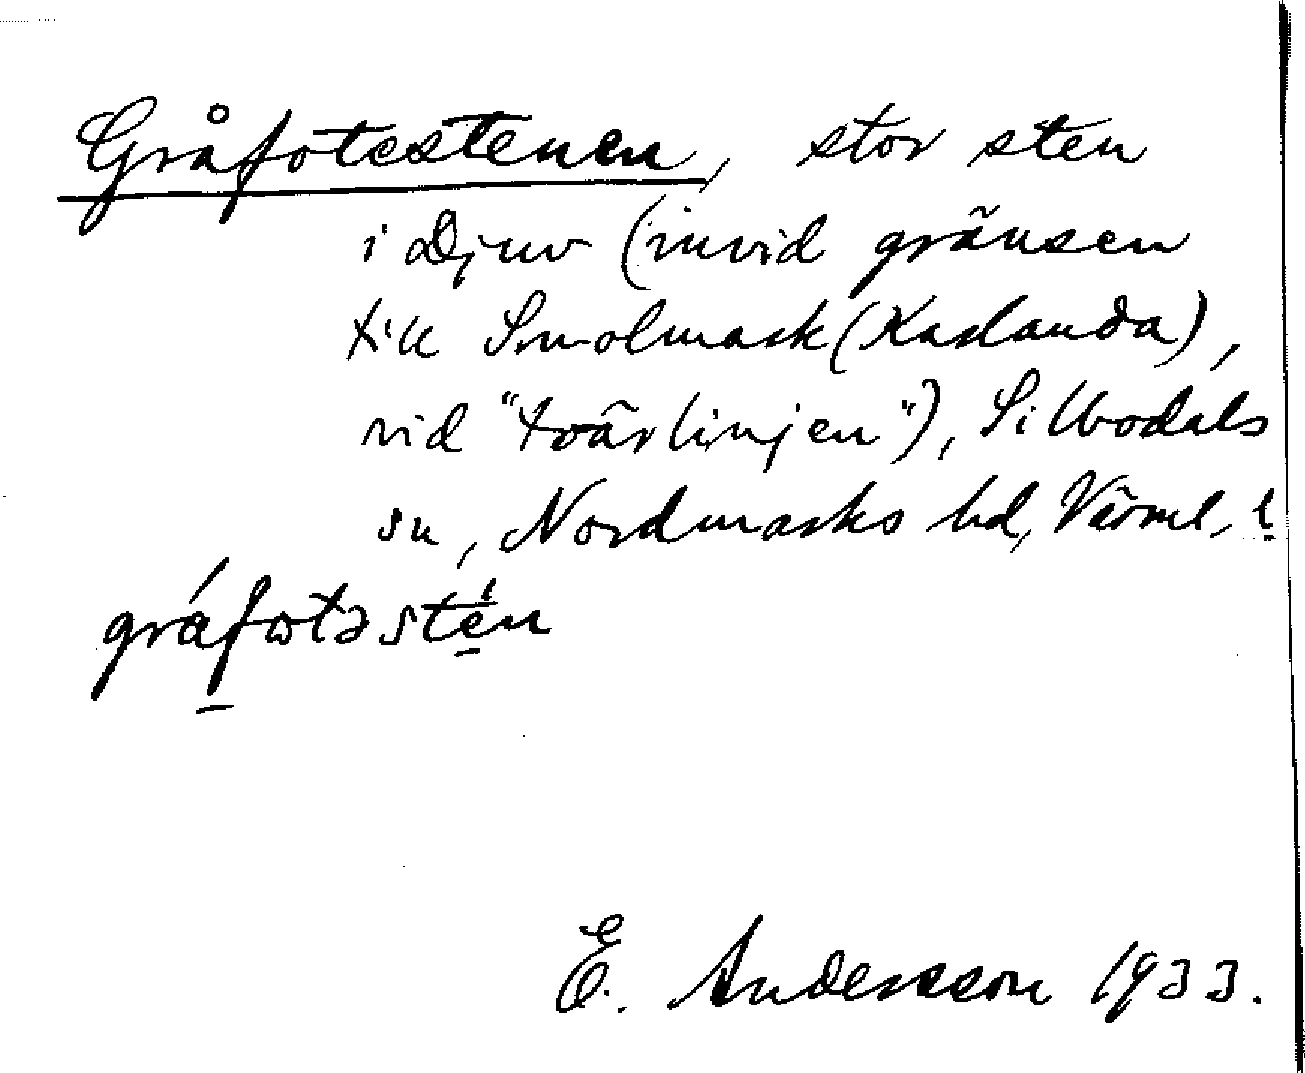 Gråfotestenen, stor sten
i Djuv (invid gränsen
till Smolmark (Karlanda),
vid "tvärlinjen"), Silbodals
sn, Nordmarks hd, Värml. l.
gráfɷtəsté̱n
E. Andersson 1933.